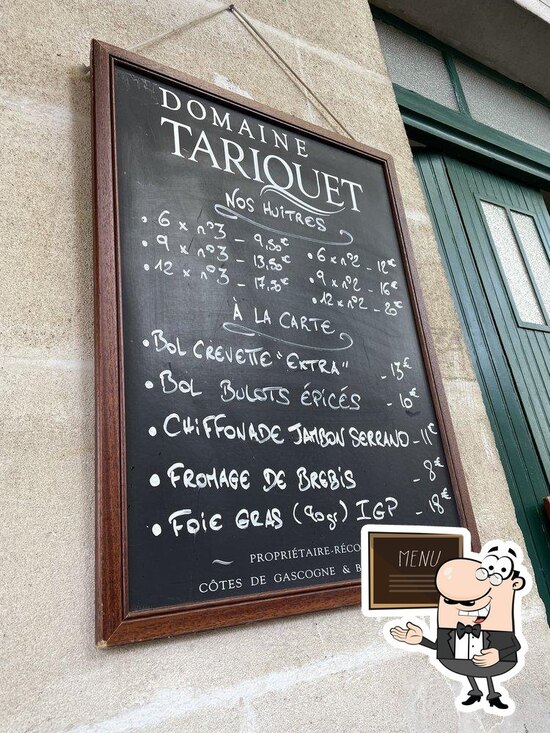 DOMAINE
TARIQUET
NOS HUÎTRES
• 6 x n°3 - 9,50€
• 9 x n°3 - 13,50€
• 12 x n°3 - 17,50€
• 6 x n°2 - 12€
• 9 x n°2 - 16€
• 12 x n°2 - 20€
À LA CARTE
• BOL CREVETTE "EXTRA" - 13€
• BOL BULOTS ÉPICÉS - 10€
• CHIFFONADE JAMBON SERRANO - 11€
• FROMAGE DE BREBIS - 8€
• FOIE GRAS (90gr) IGP - 18€
PROPRIÉTAIRE-RÉCO
CÔTES DE GASCOGNE & B
MENU